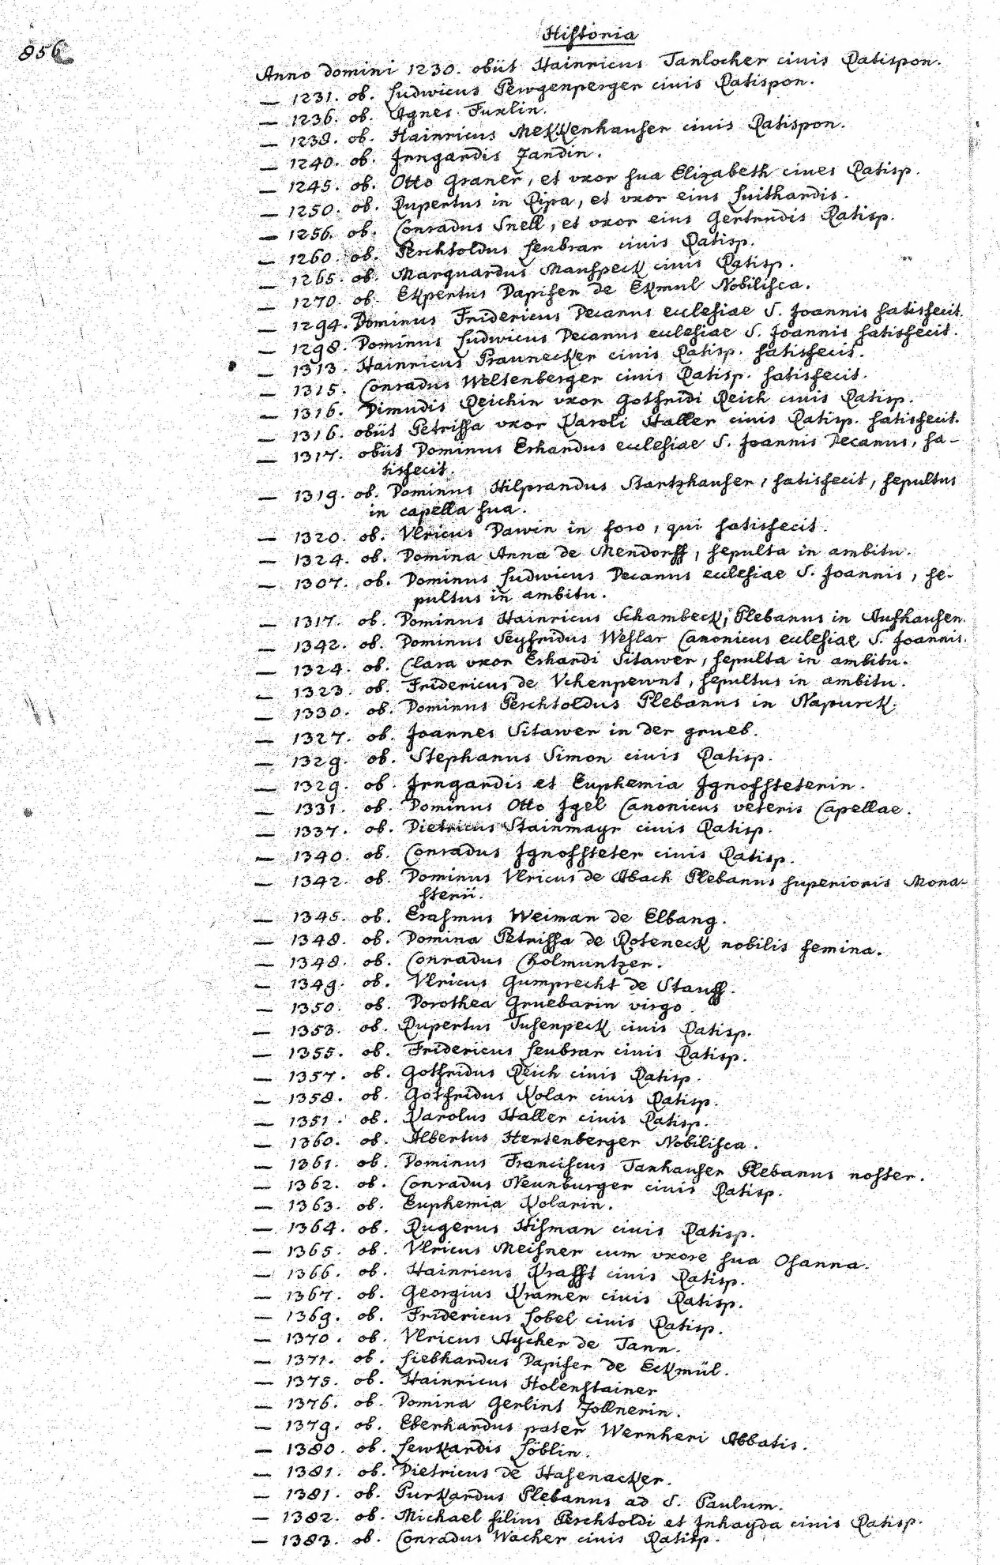 Historia
856
Anno domini 1230. obiit Hainricus Tanlocher civis Ratispon.
— 1231. ob. Ludwicus Pewgenperger civis Ratispon.
— 1236. ob. Agnes Furlin.
— 1238. ob. Hainricus Mekkenhauser civis Ratispon.
— 1240. ob. Irngardis Zandin.
— 1245. ob. Otto Graner, et uxor sua Elizabeth cives Ratisp.
— 1250. ob. Rupertus in Ripa, et uxor eius Luithardis.
— 1256. ob. Conradus Snell, et uxor eius Gertrudis Ratisp.
— 1260. ob. Perchtoldus Leubrar civis Ratisp.
— 1265. ob. Marquardus Mauspeck civis Ratisp.
— 1270. ob. Ekpertus Dapifer de Ekmul Nobilista.
— 1294. Dominus Fridericus Decanus ecclesiae S. Joannis satisfecit.
— 1298. Dominus Ludwicus Decanus ecclesiae S. Joannis satisfecit.
— 1313. Hainricus Praunecker civis Ratisp. satisfecit.
— 1315. Conradus Weltenberger civis Ratisp. satisfecit.
— 1316. Dimudis Reichin uxor Gotfridi Reich civis Ratisp.
— 1316. obiit Petrissa uxor Karoli Haller civis Ratisp. satisfecit.
— 1317. obiit Dominus Erhardus ecclesiae S. Joannis Decanus, sa-
tisfecit.
— 1319. ob. Dominus Hilprandus Startzhauser, satisfecit, sepultus
in capella sua.
— 1320. ob. Ulricus Dawin in foro, qui satisfecit.
— 1324. ob. Domina Anna de Mendorff, sepulta in ambitu.
— 1307. ob. Dominus Ludwicus Decanus ecclesiae S. Joannis, se-
pultus in ambitu.
— 1317. ob. Dominus Hainricus Schambeck, Plebanus in Aufhausen.
— 1342. ob. Dominus Seyfridus Weslar Canonicus ecclesiae S. Joannis.
— 1324. ob. Clara uxor Erhardi Sitawer, sepulta in ambitu.
— 1323. ob. Fridericus de Vchenpewnt, sepultus in ambitu.
— 1330. ob. Dominus Perchtoldus Plebanus in Napurck.
— 1327. ob. Joannes Sitawer in der grueb.
— 1329. ob. Stephanus Simon civis Ratisp.
— 1329. ob. Irngardis et Euphemia Ignofsteterin.
— 1331. ob. Dominus Otto Igel Canonicus veteris Capellae.
— 1337. ob. Dietricus Stainmayr civis Ratisp.
— 1340. ob. Conradus Ignofsteter civis Ratisp.
— 1342. ob. Dominus Ulricus de Abach Plebanus superioris Mona-
sterii.
— 1345. ob. Erasmus Weiman de Elbang.
— 1348. ob. Domina Petrissa de Roteneck nobilis femina.
— 1348. ob. Conradus Cholmuntzer.
— 1349. ob. Ulricus Gumprecht de Stauff.
— 1350. ob. Dorothea Gruebarin virgo.
— 1353. ob. Rupertus Tusenpeck civis Ratisp.
— 1355. ob. Fridericus Leubrar civis Ratisp.
— 1357. ob. Gotfridus Reich civis Ratisp.
— 1358. ob. Gotfridus Kolar civis Ratisp.
— 1351. ob. Karolus Haller civis Ratisp.
— 1360. ob. Albertus Hertenberger Nobilista.
— 1361. ob. Dominus Franciscus Tanhauser Plebanus noster.
— 1362. ob. Conradus Neunburger civis Ratisp.
— 1363. ob. Euphemia Kolarin.
— 1364. ob. Rugerus Hisman civis Ratisp.
— 1365. ob. Ulricus Meisner cum uxore sua Osanna.
— 1366. ob. Hainricus Krafft civis Ratisp.
— 1367. ob. Georgius Kramer civis Ratisp.
— 1369. ob. Fridericus Lobel civis Ratisp.
— 1370. ob. Ulricus Aycher de Tann.
— 1371. ob. Liebhardus Dapifer de Eckmül.
— 1375. ob. Hainricus Holenstainer
— 1376. ob. Domina Gerlint Zollnerin.
— 1379. ob. Eberhardus pater Wernheri Abbatis.
— 1380. ob. Lewkardis Löblin.
— 1381. ob. Dietricus de Hasenacker.
— 1381. ob. Purkardus Plebanus ad S. Paulum.
— 1382. ob. Michael filius Perchtoldi et Inhayda civis Ratisp.
— 1383. ob. Conradus Wacher civis Ratisp.